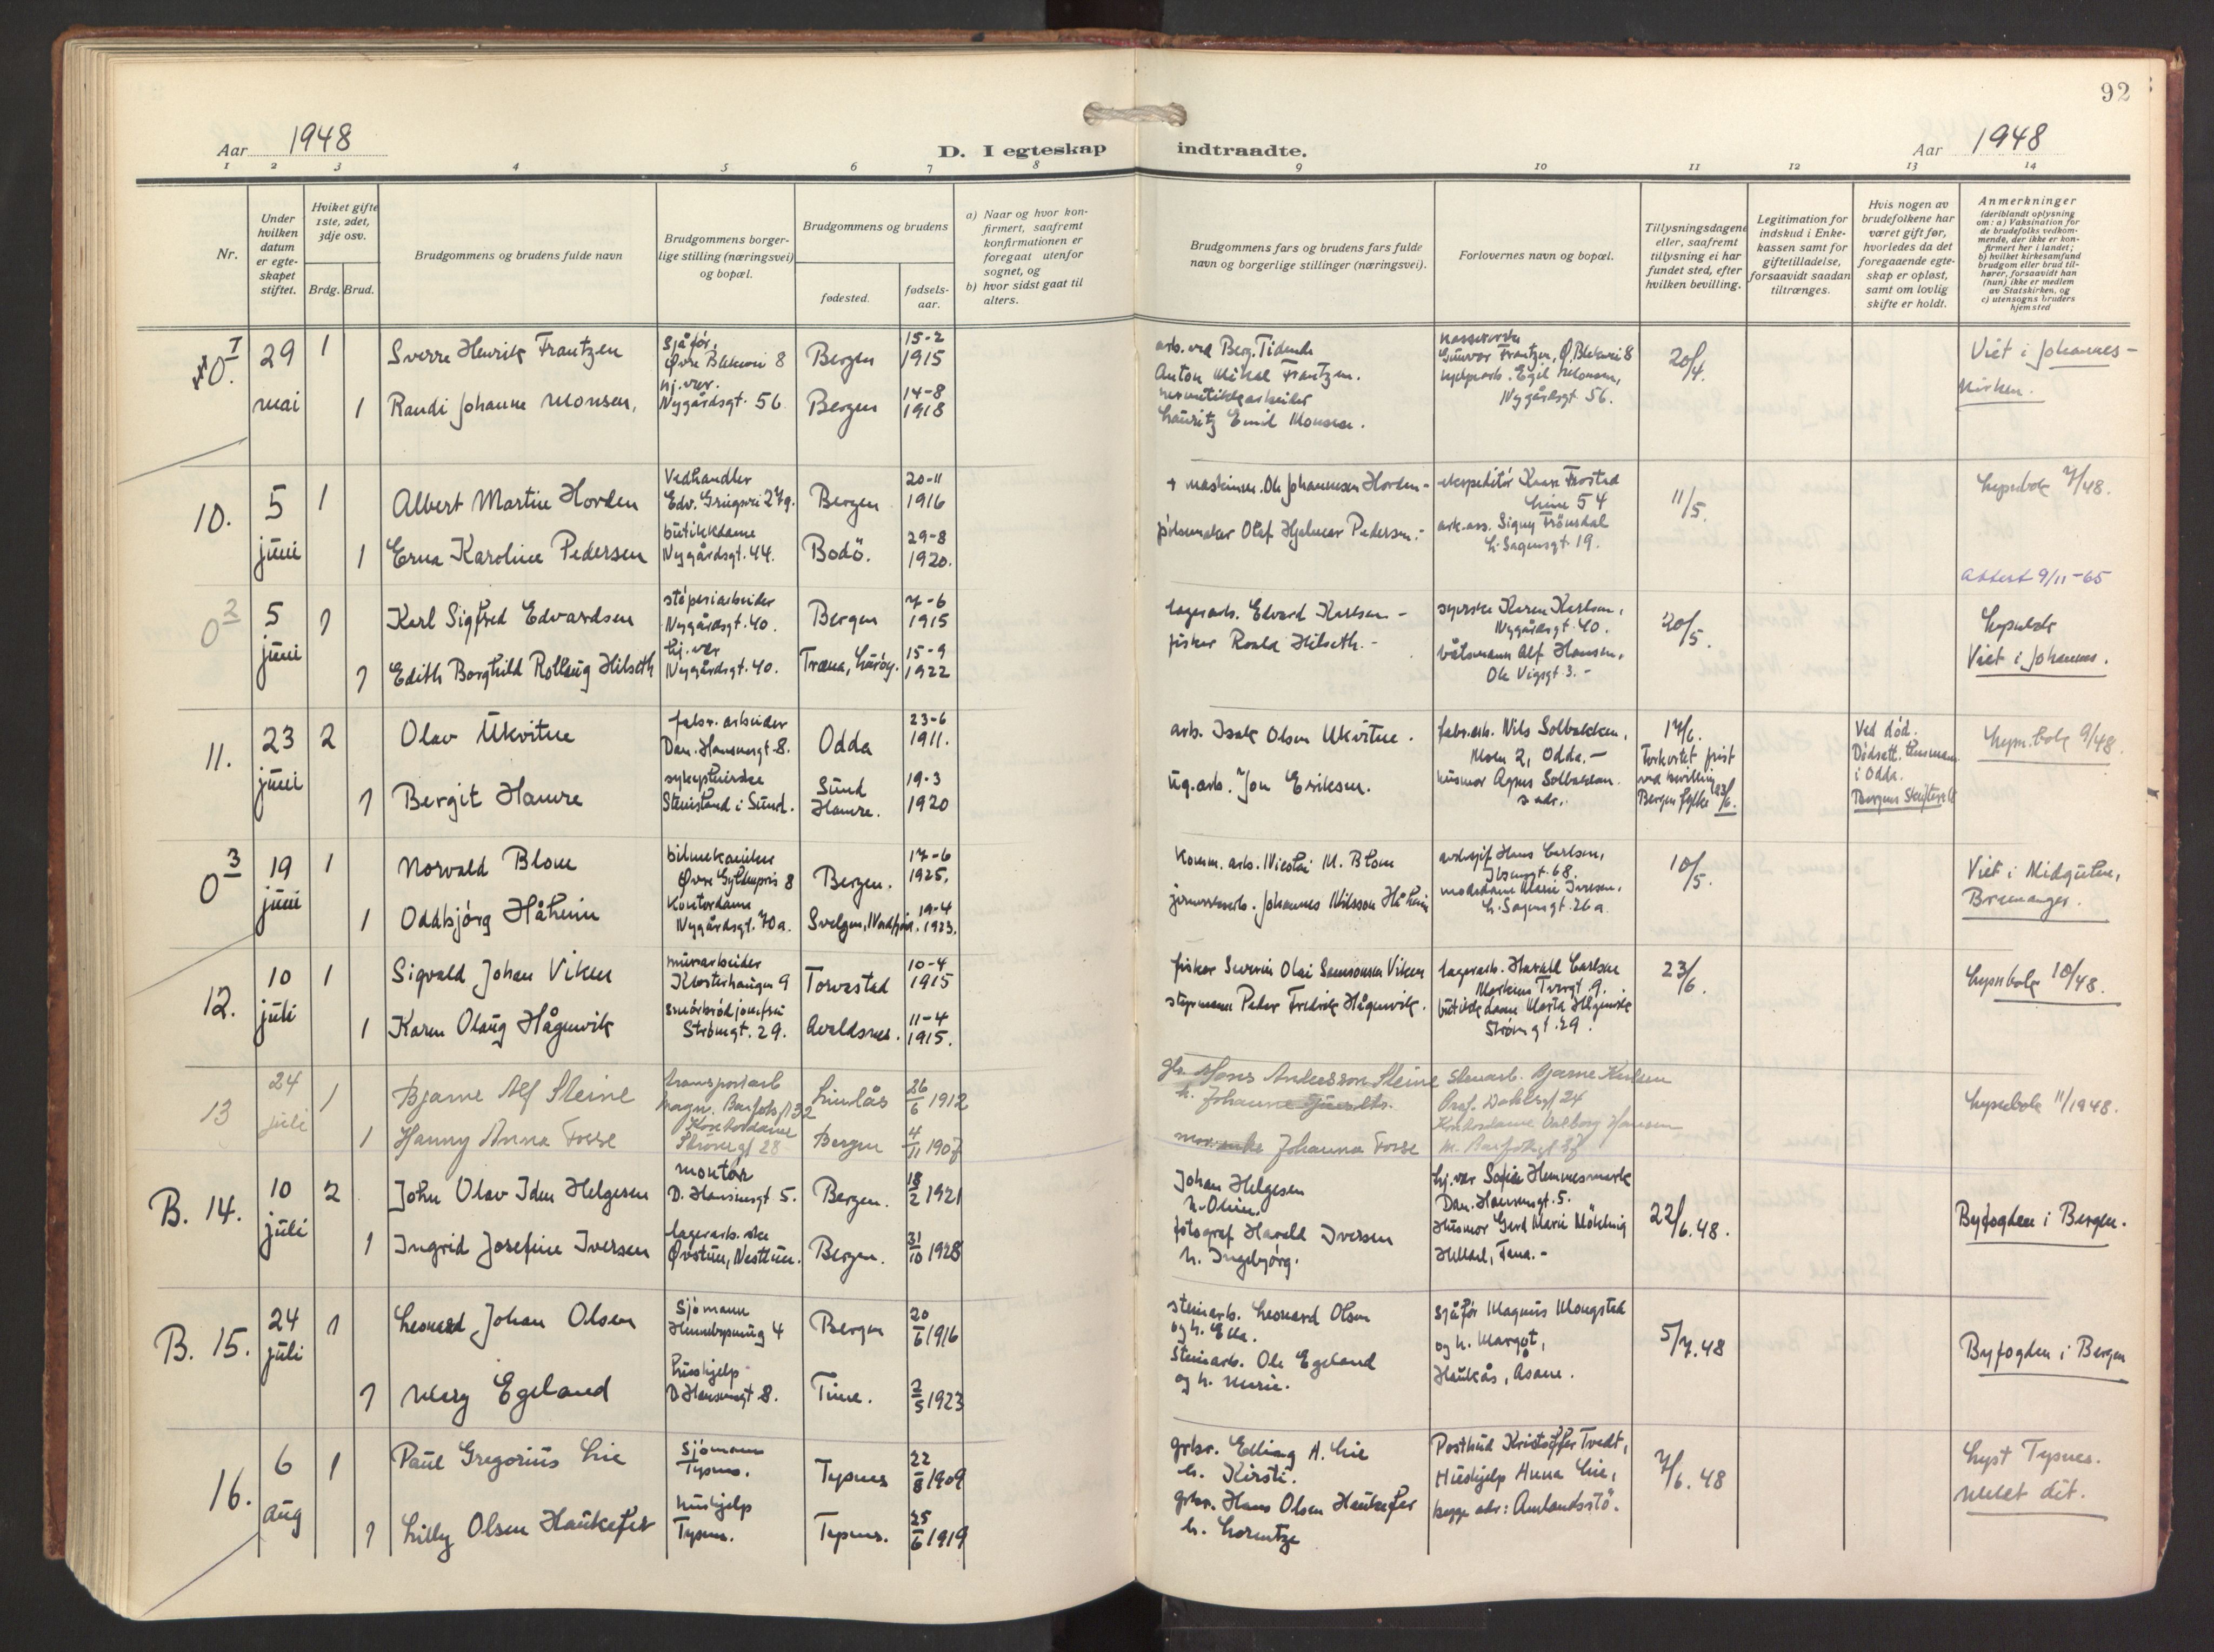 92
Aar 1948
D. I egteskap indtraadte.
Aar 1948
1 2 3 4 5 6 7 8 9 10 11 12 13 14
Nr.
Under hvilken datum er egteskapet stiftet.
Hviket gifte 1ste, 2det, 3dje osv.
Brdg. Brud.
Brudgommens og brudens fulde navn
Brudgommens borgerlige stilling (næringsvei) og bopæl.
Brudgommens og brudens
fødested.
fødselsaar.
a) Naar og hvor konfirmert, saafremt konfirmationen er foregaat utenfor sognet, og
b) hvor sidst gaat til alters.
Brudgommens fars og brudens fars fulde navn og borgerlige stillinger (næringsvei).
Forlovernes navn og bopæl.
Tillysningsdagene eller, saafremt tillysning ei har fundet sted, efter hvilken bevilling.
Legitimation for indskud i Enkekassen samt for giftetilladelse, forsaavidt saadan tiltrænges.
Hvis nogen av brudefolkene har været gift før, hvorledes da det foregaaende egteskap er opløst, samt om lovlig skifte er holdt.
Anmerkninger
(deriblandt oplysning om: a) Vaksination for de brudefolks vedkommende, der ikke er konfirmert her i landet; b) hvilket kirkesamfund brudgom eller brud tilhører, forsaavidt han (hun) ikke er medlem av Statskirken, og c) utensogns bruders hjemsted
29 mai
1 Sverre Henrik Frantzen
sjåfør, Øvre Blekevei 8
Bergen
15-2 1915
arb. ved Berg. Tidende
Anton Mikal Frantzen.
Gunvor Frantzen, Ø. Blekevei 8
20/4.
Viet i Johanneskirken.
1 Randi Johanne Monsen,
hj. vær. Nygårdsgt. 56
Bergen
14-8 1918
hermetikkarbeider
Lauritz Emil Monsen.
Egil Monsen,
Nygårdsgt 56.
10. 5 juni
1 Albert Martin Hovden
Vedhandler
Bergen
20-11 1916
+ maskinm. Ole Johannesen Hovden
11/5.
Lysnbok 7/48.
1 Erna Karoline Pedersen
butikkdame
Nygårdsgt. 44.
Bodö.
29-8 1920.
pølsemaker Olaf Hjalmar Pedersen.-
L. Sagensgt 19.
Attest 9/11-65
0 2 5 juni
1 Karl Sigfred Edvardsen
støperiarbeider
Nygårdsgt. 40.
Bergen
7-6 1915
lagerarb. Edvard Karlsen -
syerske Karen Karlsen,
Nygårdsgt. 40.
20/5.
Viet i Johannes.
1 Edith Borghild Rollaug Hilseth
hj. vær
Nygårdsgt. 40.
Træna, Lurøy.
15-9 1922
fisker Roald Hilseth.-
båtsmann Alf Hansen,
Ole Vigsgt 3.-
11. 23 juni
2 Olav Ukvitne
fabr. arbeider
Dan. Hansensgt. 8.
Odda
23-6 1911.
arb. Isak Olsen Ukvitne.
fabr.arb. Nils Solbakken,
Moen 2, Odda.-
17/6.
Forkortet frist ved bevilling Bergen fylke 23/6.
Ved død.
i Odda.
Lysn.bok 9/48.
1 Bergit Hamre
sykepleierske
Steinsland i Sund.
Sund
Hamre.
19-3 1920
ug.arb. Jon Eriksen.
husmor Agnes Solbakken.
s. adr.
0 3 19 juni
1 Norvald Blom
bilmekaniker
Øvre Gyldenpris 8
Bergen.
17-6 1925.
komm. arb. Nicolai M. Blom
Hans Carlsen,
Ibsensgt. 68.
10/5.
Viet i Midgulen,
Bremanger.
1 Oddbjørg Håheim
Kontordame
Nygårdsgt. 70a.
Svelgen, Nordfjord.
19-4 1923.
jernverksarb. Johannes Nilsson Håheim
modedame Marie Iversen,
L. Sagensgt. 26a
12. 10 juli
1 Sigvald Johan Viken
murarbeider
Klosterhaugen 9
Torvastad
10-4 1915
fisker Severin Olai Samsonsen Viken
lagerarb. Harald Carlsen
23/6.
Lysnbok 10/48.
1 Karen Olaug Hågenvik
smørbrødjomfru
Strömgt. 29.
Avaldsnes.
11-4 1915.
styrmann Peder Fredrik Hågenvik.
butikkdame Marta Hågenvik
Strömgt. 29.
13 24 juli
1 Bjarne Alf Steine
transportarb
Magn. Barfotsgt 32
Lindås
26/6 1912
Hans Andersson Steine
Bjarne Karlsen
Prof. Dahlsgt 24
Lysnbok 11/1948.
1 Hanny Anna Fosse
Kontordame
Strömgt 28
Bergen
4/11 1907
Johanna Fosse
Kontordame Valborg Hansen
M. Barfotsgt 37
B. 14. 10 juli
2 John Olav Iden Helgesen
montør
D. Hansensgt 5.
Bergen.
18/2 1921
Johan Helgesen
hj. vær Sofie Hennesmark
Dan. Hansensgt. 5.
22/6. 48.
Byfogden i Bergen.
1 Ingrid Josefine Iversen
lagerarb.ske
Øvstun, Nesttun.
Bergen.
31/10 1928
fotograf Harald Iversen
h. Ingebjørg.
Husmor Gerd Marie
Helldal, Fana.-
B. 15. 24 juli
1 Leonard Johan Olsen
Sjømann
Bergen
20/6 1916
steinarb. Leonard Olsen
og h. Ella.
sjåfør Magnus Mongstad
og h. Margot,
Haukås, Åsane.
5/7. 48
Byfogden i Bergen
1 Mary Egeland
hushjelp
D. Hansensgt 8.
Time.
2/5 1923
Steinarb. Ole Egeland
og h. Marie.
16. 6 aug
1 Paul Gregorius Lie
sjømann
Tysnes.
Tysnes
22/8 1909
grbr. Elling H. Lie
h. Kirsti.
Postbud Kristoffer Tvedt,
Hushjelp Anna Lie,
begge adr: Amlandsstø.
7/6. 48
Lyst Tysnes.
Meldt dit.
1 Lilly Olsen Haukefer
hushjelp
Tysnes.
Tysnes.
25/6 1919
grbr. Hans Olsen Haukefer
h. Lorentze